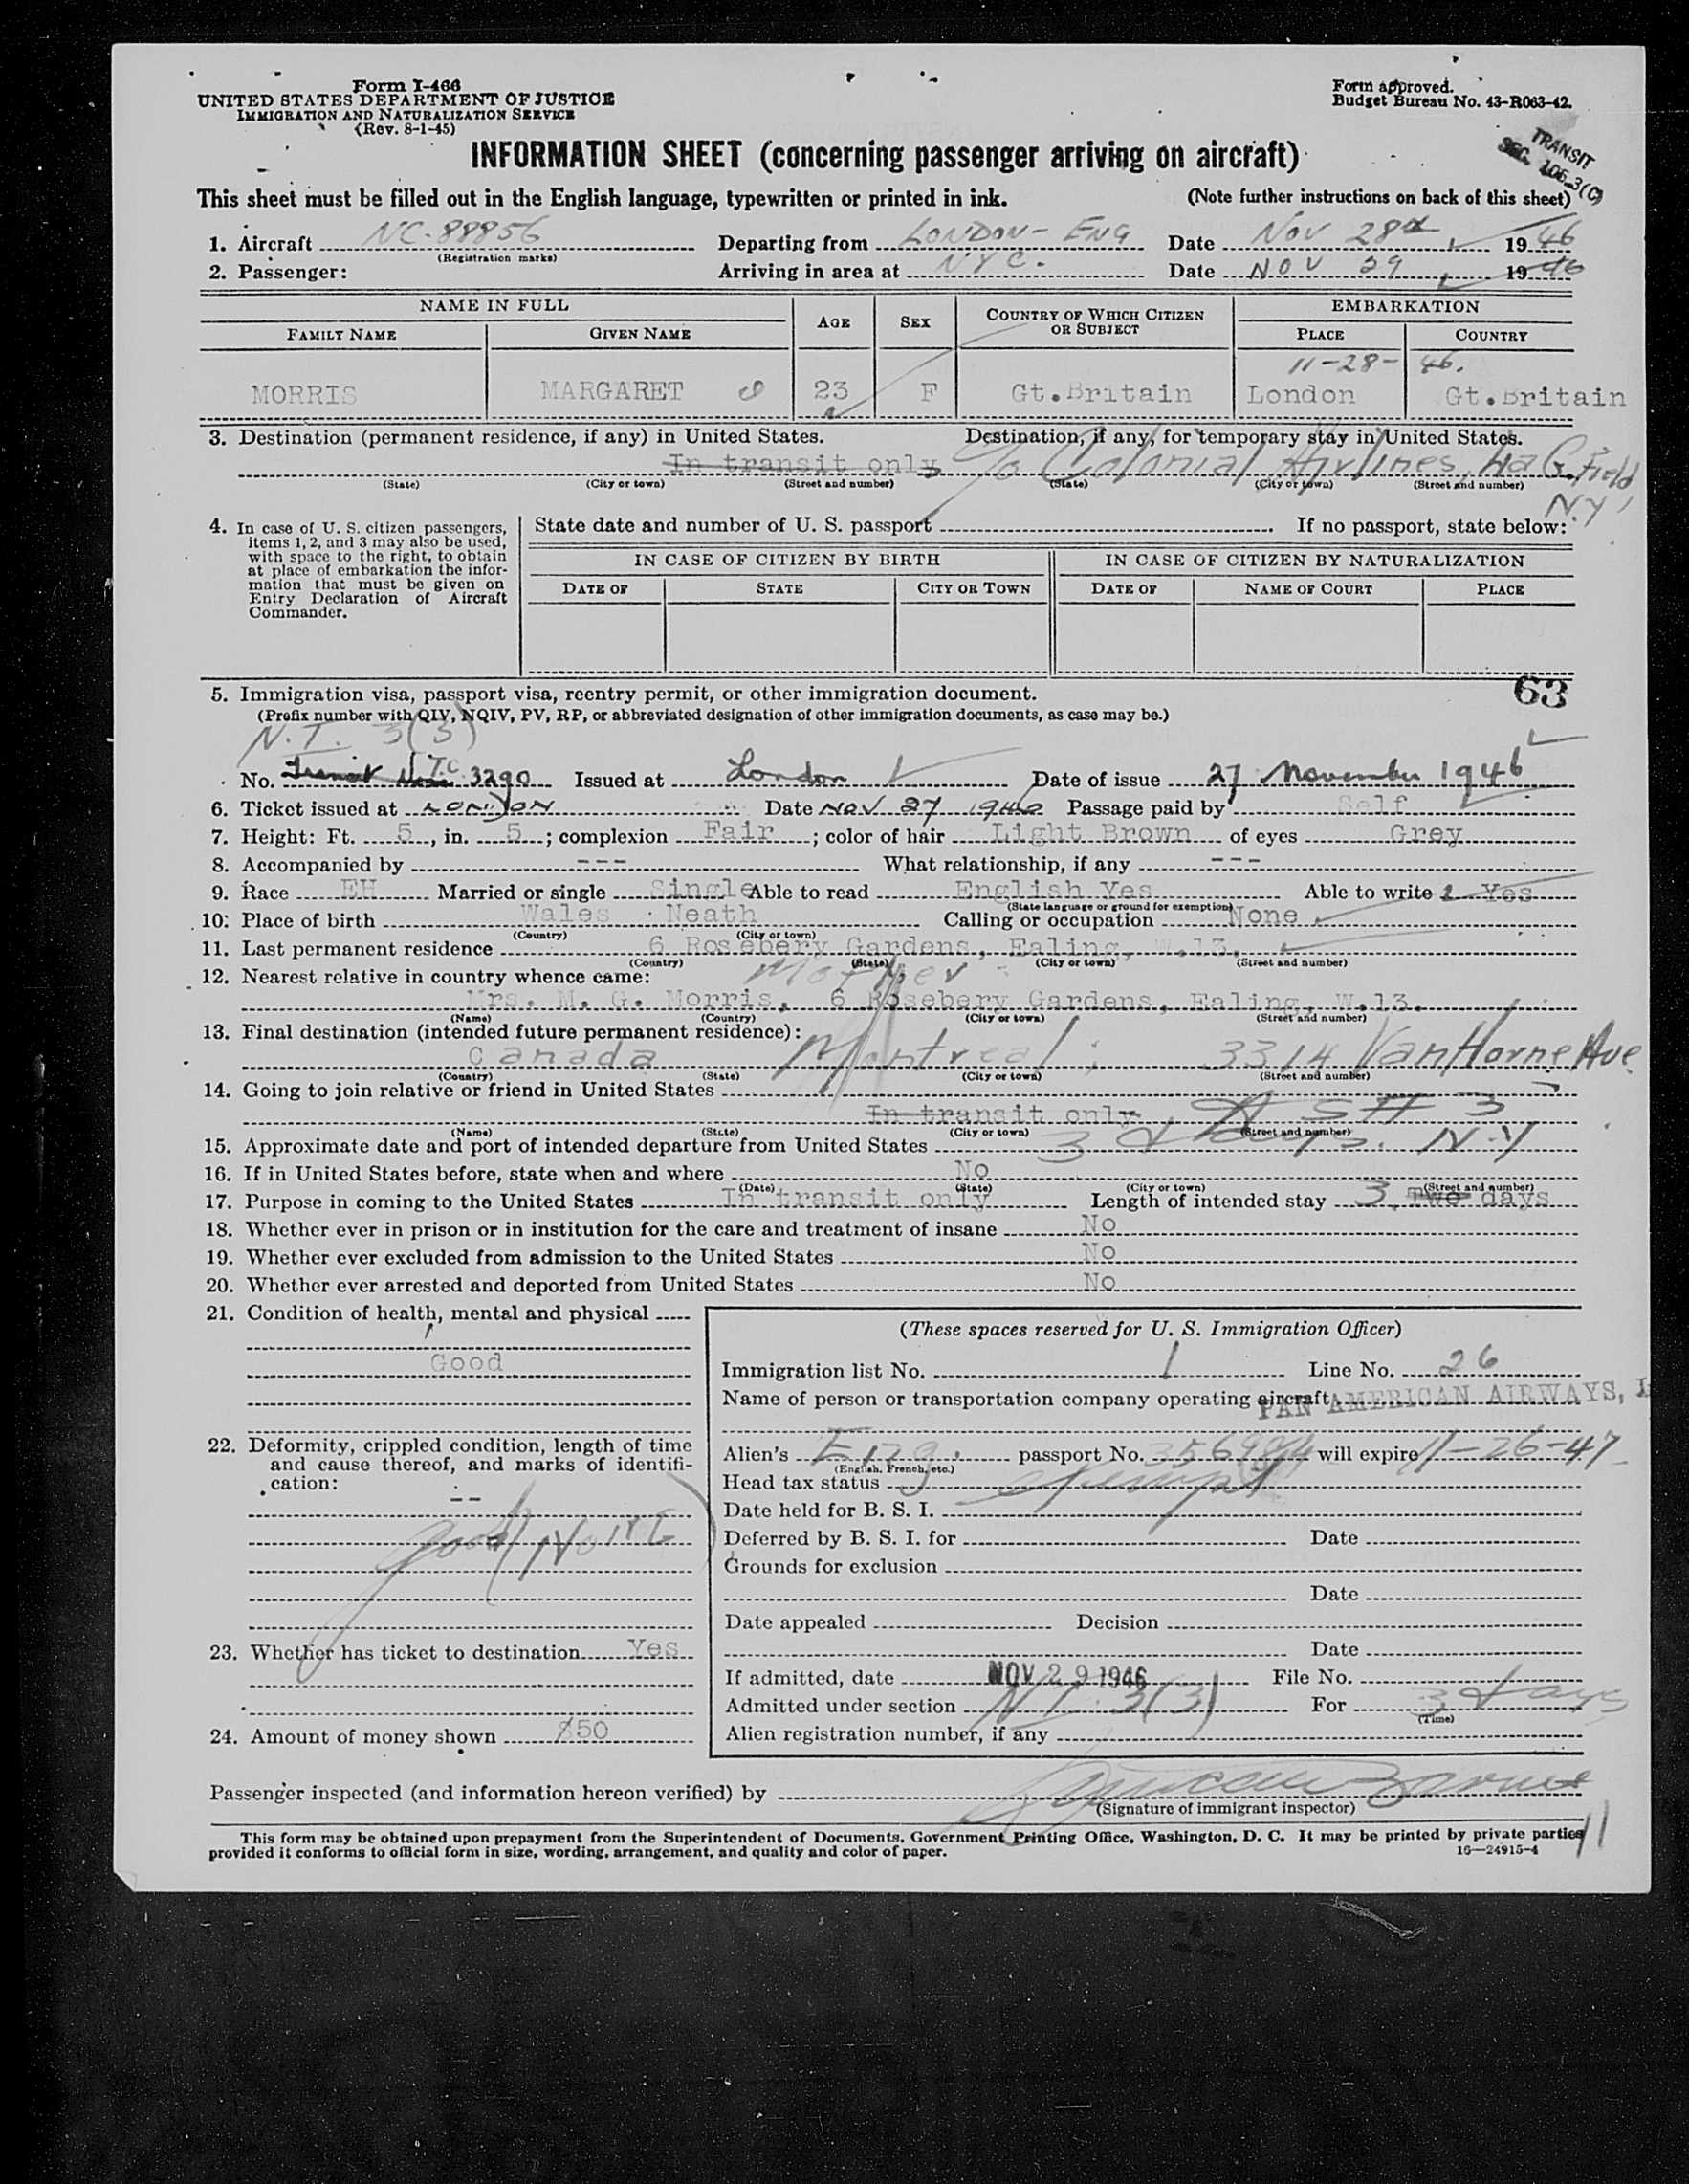 Form I-466
UNITED STATES DEPARTMENT OF JUSTICE
IMMIGRATION AND NATURALIZATION SERVICE
(Rev. 8-1-45)
Form approved.
Budget Bureau No. 43-R063-42.
TRANSIT
SEC. 106.3(C)
INFORMATION SHEET (concerning passenger arriving on aircraft)
This sheet must be filled out in the English language, typewritten or printed in ink. (Note further instructions on back of this sheet)
1. Aircraft NC-88856 Departing from LONDON - ENG Date Nov 28th 1946
(Registration marks)
2. Passenger: Arriving in area at NYC. Date NOV 29 1946
NAME IN FULL AGE SEX COUNTRY OF WHICH CITIZEN OR SUBJECT EMBARKATION
FAMILY NAME GIVEN NAME PLACE COUNTRY
11-28-46.
MORRIS MARGARET 23 F Gt.Britain London Gt.Britain
3. Destination (permanent residence, if any) in United States. Destination, if any, for temporary stay in United States.
In transit only c/o Colonial Airlines, La G. Field
(State) (City or town) (Street and number) (State) (City or town) (Street and number)
N.Y.
4. In case of U. S. citizen passengers, items 1, 2, and 3 may also be used, with space to the right, to obtain at place of embarkation the information that must be given on Entry Declaration of Aircraft Commander.
State date and number of U. S. passport . If no passport, state below:
IN CASE OF CITIZEN BY BIRTH IN CASE OF CITIZEN BY NATURALIZATION
DATE OF STATE CITY OR TOWN DATE OF NAME OF COURT PLACE
63
5. Immigration visa, passport visa, reentry permit, or other immigration document.
(Prefix number with QIV, NQIV, PV, RP, or abbreviated designation of other immigration documents, as case may be.)
N.T. 3(3)
No. Transit T.C. 3290 Issued at London Date of issue 27 November 1946
6. Ticket issued at LONDON Date NOV 27 1946 Passage paid by Self
7. Height: Ft. 5, in. 5; complexion Fair; color of hair Light Brown of eyes Grey
8. Accompanied by --- What relationship, if any ---
9. Race EH Married or single Single Able to read English Yes Able to write Yes
(State language or ground for exemption)
10. Place of birth Wales Neath Calling or occupation None
(Country) (City or town)
11. Last permanent residence 6 Rosebery Gardens, Ealing, W.13.
(Country) (State) (City or town) (Street and number)
12. Nearest relative in country whence came: Mother
Mrs. M. G. Morris, 6 Rosebery Gardens, Ealing, W.13.
(Name) (Country) (City or town) (Street and number)
13. Final destination (intended future permanent residence):
Canada Montreal; 3314 Van Horne Ave
(Country) (State) (City or town) (Street and number)
14. Going to join relative or friend in United States
In transit only
(Name) (State) (City or town) (Street and number)
15. Approximate date and port of intended departure from United States 3 days. N.Y
16. If in United States before, state when and where No
(Date) (State) (City or town) (Street and number)
17. Purpose in coming to the United States In transit only Length of intended stay 3 Two days
18. Whether ever in prison or in institution for the care and treatment of insane No
19. Whether ever excluded from admission to the United States No
20. Whether ever arrested and deported from United States No
21. Condition of health, mental and physical
Good
22. Deformity, crippled condition, length of time and cause thereof, and marks of identification:
--
good/None
23. Whether has ticket to destination Yes
24. Amount of money shown $50
(These spaces reserved for U. S. Immigration Officer)
Immigration list No. 1 Line No. 26
Name of person or transportation company operating aircraft PAN AMERICAN AIRWAYS, I
Alien's Eng. passport No. 356984 will expire 11-26-47
(English, French, etc.)
Head tax status exempt
Date held for B. S. I.
Deferred by B. S. I. for Date
Grounds for exclusion
Date
Date appealed Decision
Date
If admitted, date NOV 29 1946 File No.
Admitted under section N.T. 3(3) For 3 days
(Time)
Alien registration number, if any
Passenger inspected (and information hereon verified) by
(Signature of immigrant inspector)
11
This form may be obtained upon prepayment from the Superintendent of Documents, Government Printing Office, Washington, D. C. It may be printed by private parties
provided it conforms to official form in size, wording, arrangement, and quality and color of paper. 16—24915-4